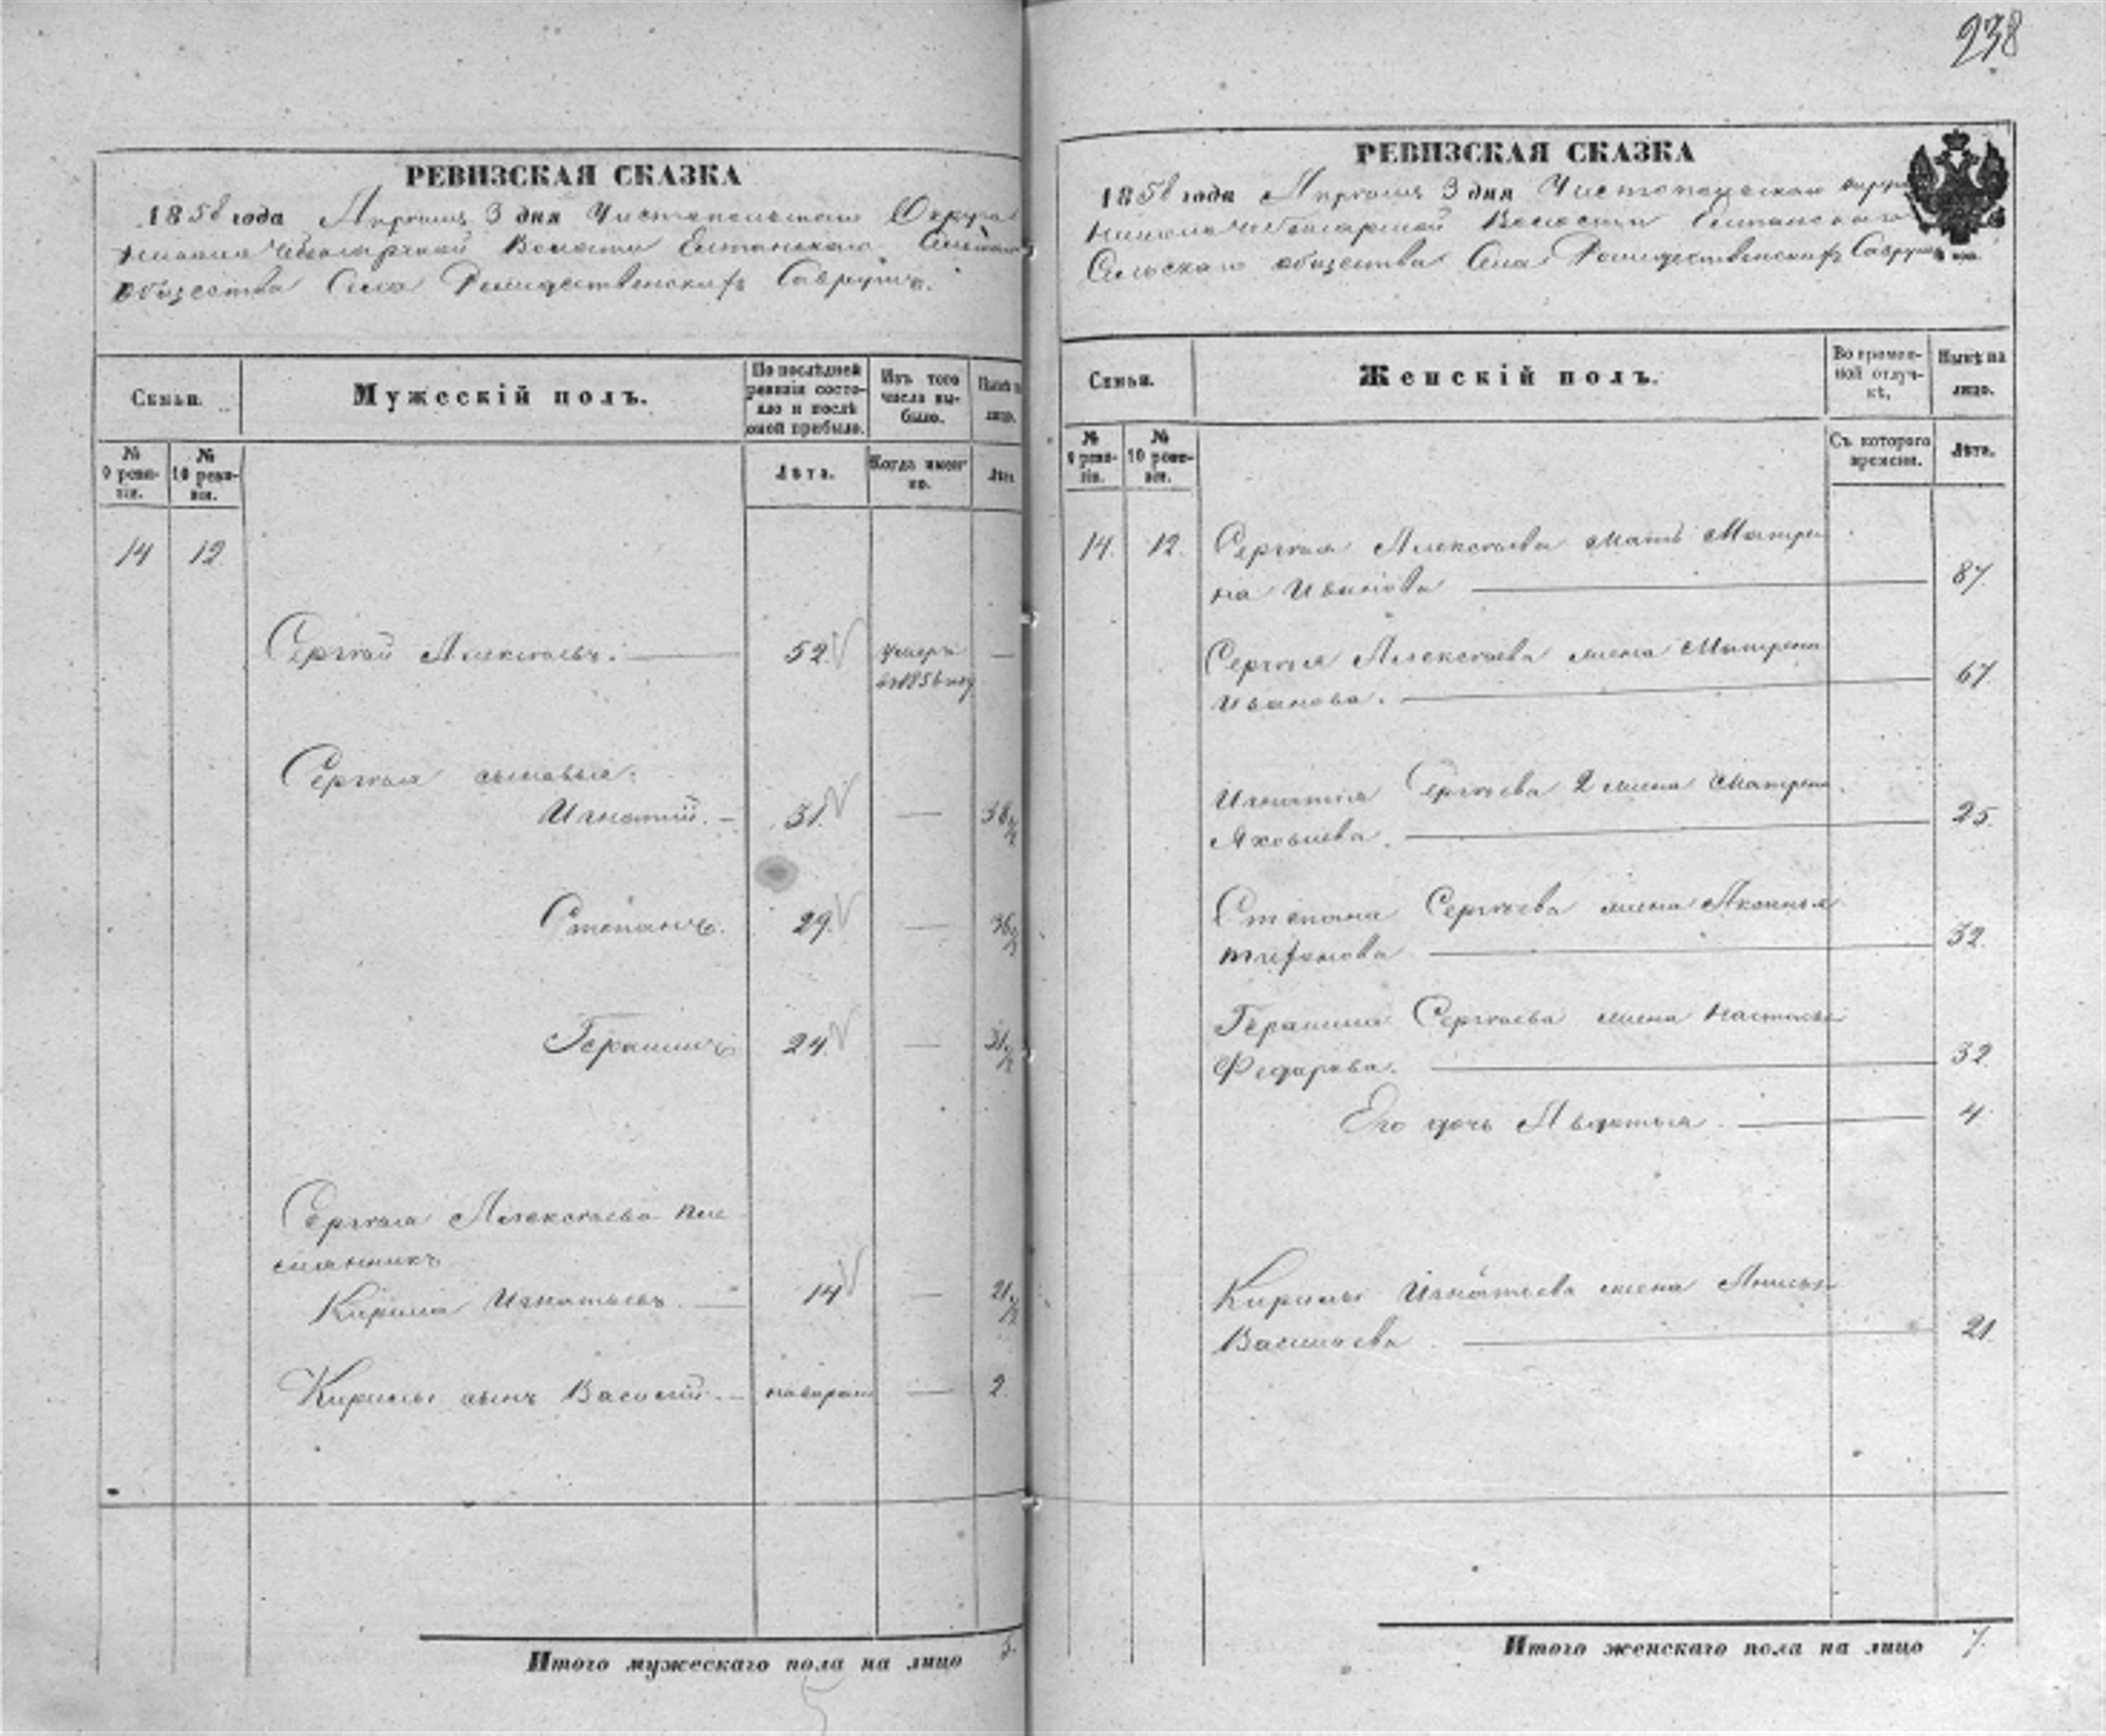 238
РЕВИЗСКАЯ СКАЗКА
1858 года Апреля 3 дня Чистопольскаго Округа
Волости Елтанскаго Сельскаго
общества Села Рождественскихъ Саврушъ.
Семьи.
Мужескій полъ.
По послѣдней ревизіи состояло и послѣ оной прибыло.
Изъ того числа выбыло.
Нынѣ на лицо.
№ 9 ревизіи.
№ 10 ревизіи.
Лѣта.
Когда именно.
Лѣта.
14 12
Сергѣй Алексѣевъ. — 52. умеръ —
въ 1856 году
Сергѣя сыновья:
Игнатій. — 31. — 38 1/2
Степанъ. 29. — 36 1/2
Герасимъ 24. — 31 1/2
Сергѣя Алексѣева пле
мянникъ
Кирила Игнатьевъ — 14 — 21 1/2
Кирилы сынъ Василій. — — 2.
Итого мужескаго пола на лицо 5.
РЕВИЗСКАЯ СКАЗКА
1858 года Апреля 3 дня Чистопольскаго округа
Волости Елтанскаго
Сельскаго общества Села Рождественскихъ Саврушъ
Семьи.
Женскій полъ.
Во временной отлучкѣ.
Нынѣ на лицо.
№ 9 ревизіи.
№ 10 ревизіи.
Съ котораго времени.
Лѣта.
14. 12. Сергѣя Алексѣева мать Матре
на Иванова — 87.
Сергѣя Алексѣева жена Матрена
Иванова. — 67.
Игнатія Сергѣева 2 жена Матрена
Яковлева. — 25.
Степана Сергѣева жена
Трифонова — 32.
Герасима Сергѣева жена Настасья
Федарова. — 32.
Его дочь Авдотья. — 4.
Кирилы Игнатьева жена Анисья
Васильева — 21.
Итого женскаго пола на лицо 7.